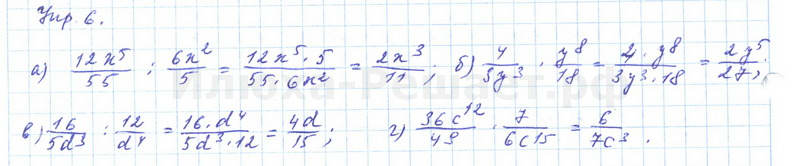 Упр 6.
а) 12x⁵/55 : 6x²/5 = 12x⁵·5/55·6x² = 2x³/11; б) 4/3y³ · y⁸/18 = 4·y⁸/3y³·18 = 2y⁵/27;
в) 16/5d³ : 12/d⁴ = 16·d⁴/5d³·12 = 4d/15; г) 36c¹²/49 · 7/6c¹⁵ = 6/7c³.
Илюха-Решает.рф